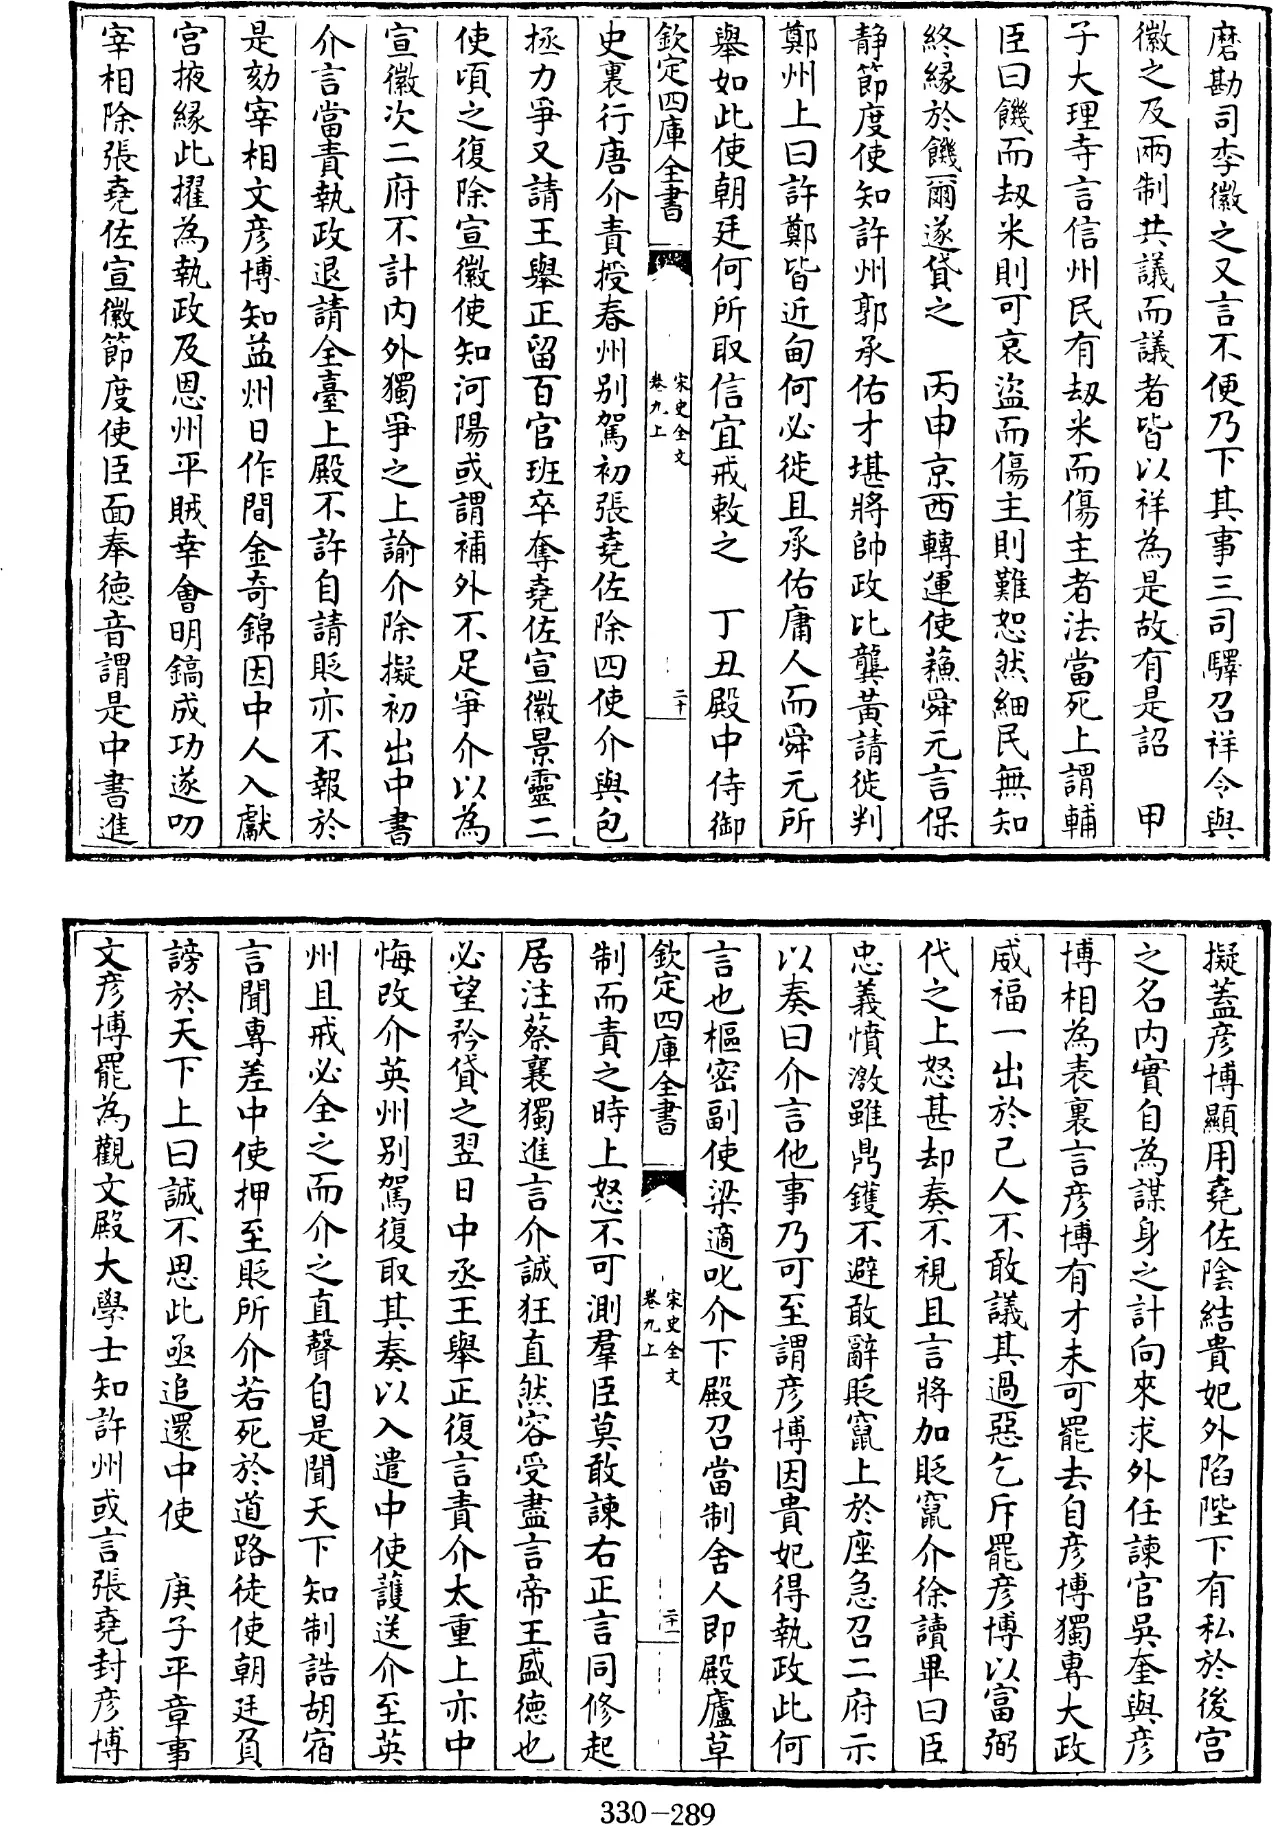 磨勘司李徽之又言不便乃下其事三司驛召祥令與
徽之及兩制共議而議者皆以祥為是故有是詔　甲
子大理寺言信州民有刼米而傷主者法當死上謂輔
臣曰饑而刼米則可哀盜而傷主則難恕然細民無知
終緣於饑爾遂貸之　丙申京西轉運使蘓舜元言保
靜節度使知許州郭承佑才堪將帥政比龔黃請徙判
鄭州上曰許鄭皆近甸何必徙且承佑庸人而舜元所
舉如此使朝廷何所取信宜戒敕之　丁丑殿中侍御
欽定四庫全書
宋史全文
卷九上
二十
史裏行唐介責授春州别駕初張堯佐除四使介與包
拯力爭又請王舉正留百官班卒奪堯佐宣徽景靈二
使頃之復除宣徽使知河陽或謂補外不足爭介以為
宣徽次二府不計内外獨爭之上諭介除擬初出中書
介言當責執政退請全臺上殿不許自請貶亦不報於
是劾宰相文彦博知益州日作間金奇錦因中人入獻
宮掖緣此擢為執政及恩州平賊幸會明鎬成功遂叨
宰相除張堯佐宣徽節度使臣面奉德音謂是中書進
擬蓋彦博顯用堯佐陰結貴妃外陷陛下有私於後宮
之名内實自為謀身之計向來求外任諫官吳奎與彦
博相為表裏言彦博有才未可罷去自彦博獨專大政
威福一出於己人不敢議其過惡乞斥罷彦博以富弼
代之上怒甚却奏不視且言將加貶竄介徐讀畢曰臣
忠義憤激雖鼎鑊不避敢辭貶竄上於座急召二府示
以奏曰介言他事乃可至謂彦博因貴妃得執政此何
言也樞密副使梁適叱介下殿召當制舍人即殿廬草
欽定四庫全書
宋史全文
卷九上
二十一
制而責之時上怒不可測羣臣莫敢諫右正言同修起
居注蔡襄獨進言介誠狂直然容受盡言帝王盛德也
必望矜貸之翌日中丞王舉正復言責介太重上亦中
悔改介英州别駕復取其奏以入遣中使護送介至英
州且戒必全之而介之直聲自是聞天下知制誥胡宿
言聞專差中使押至貶所介若死於道路徒使朝廷負
謗於天下上曰誠不思此亟追還中使　庚子平章事
文彦博罷為觀文殿大學士知許州或言張堯封彦博
330-289